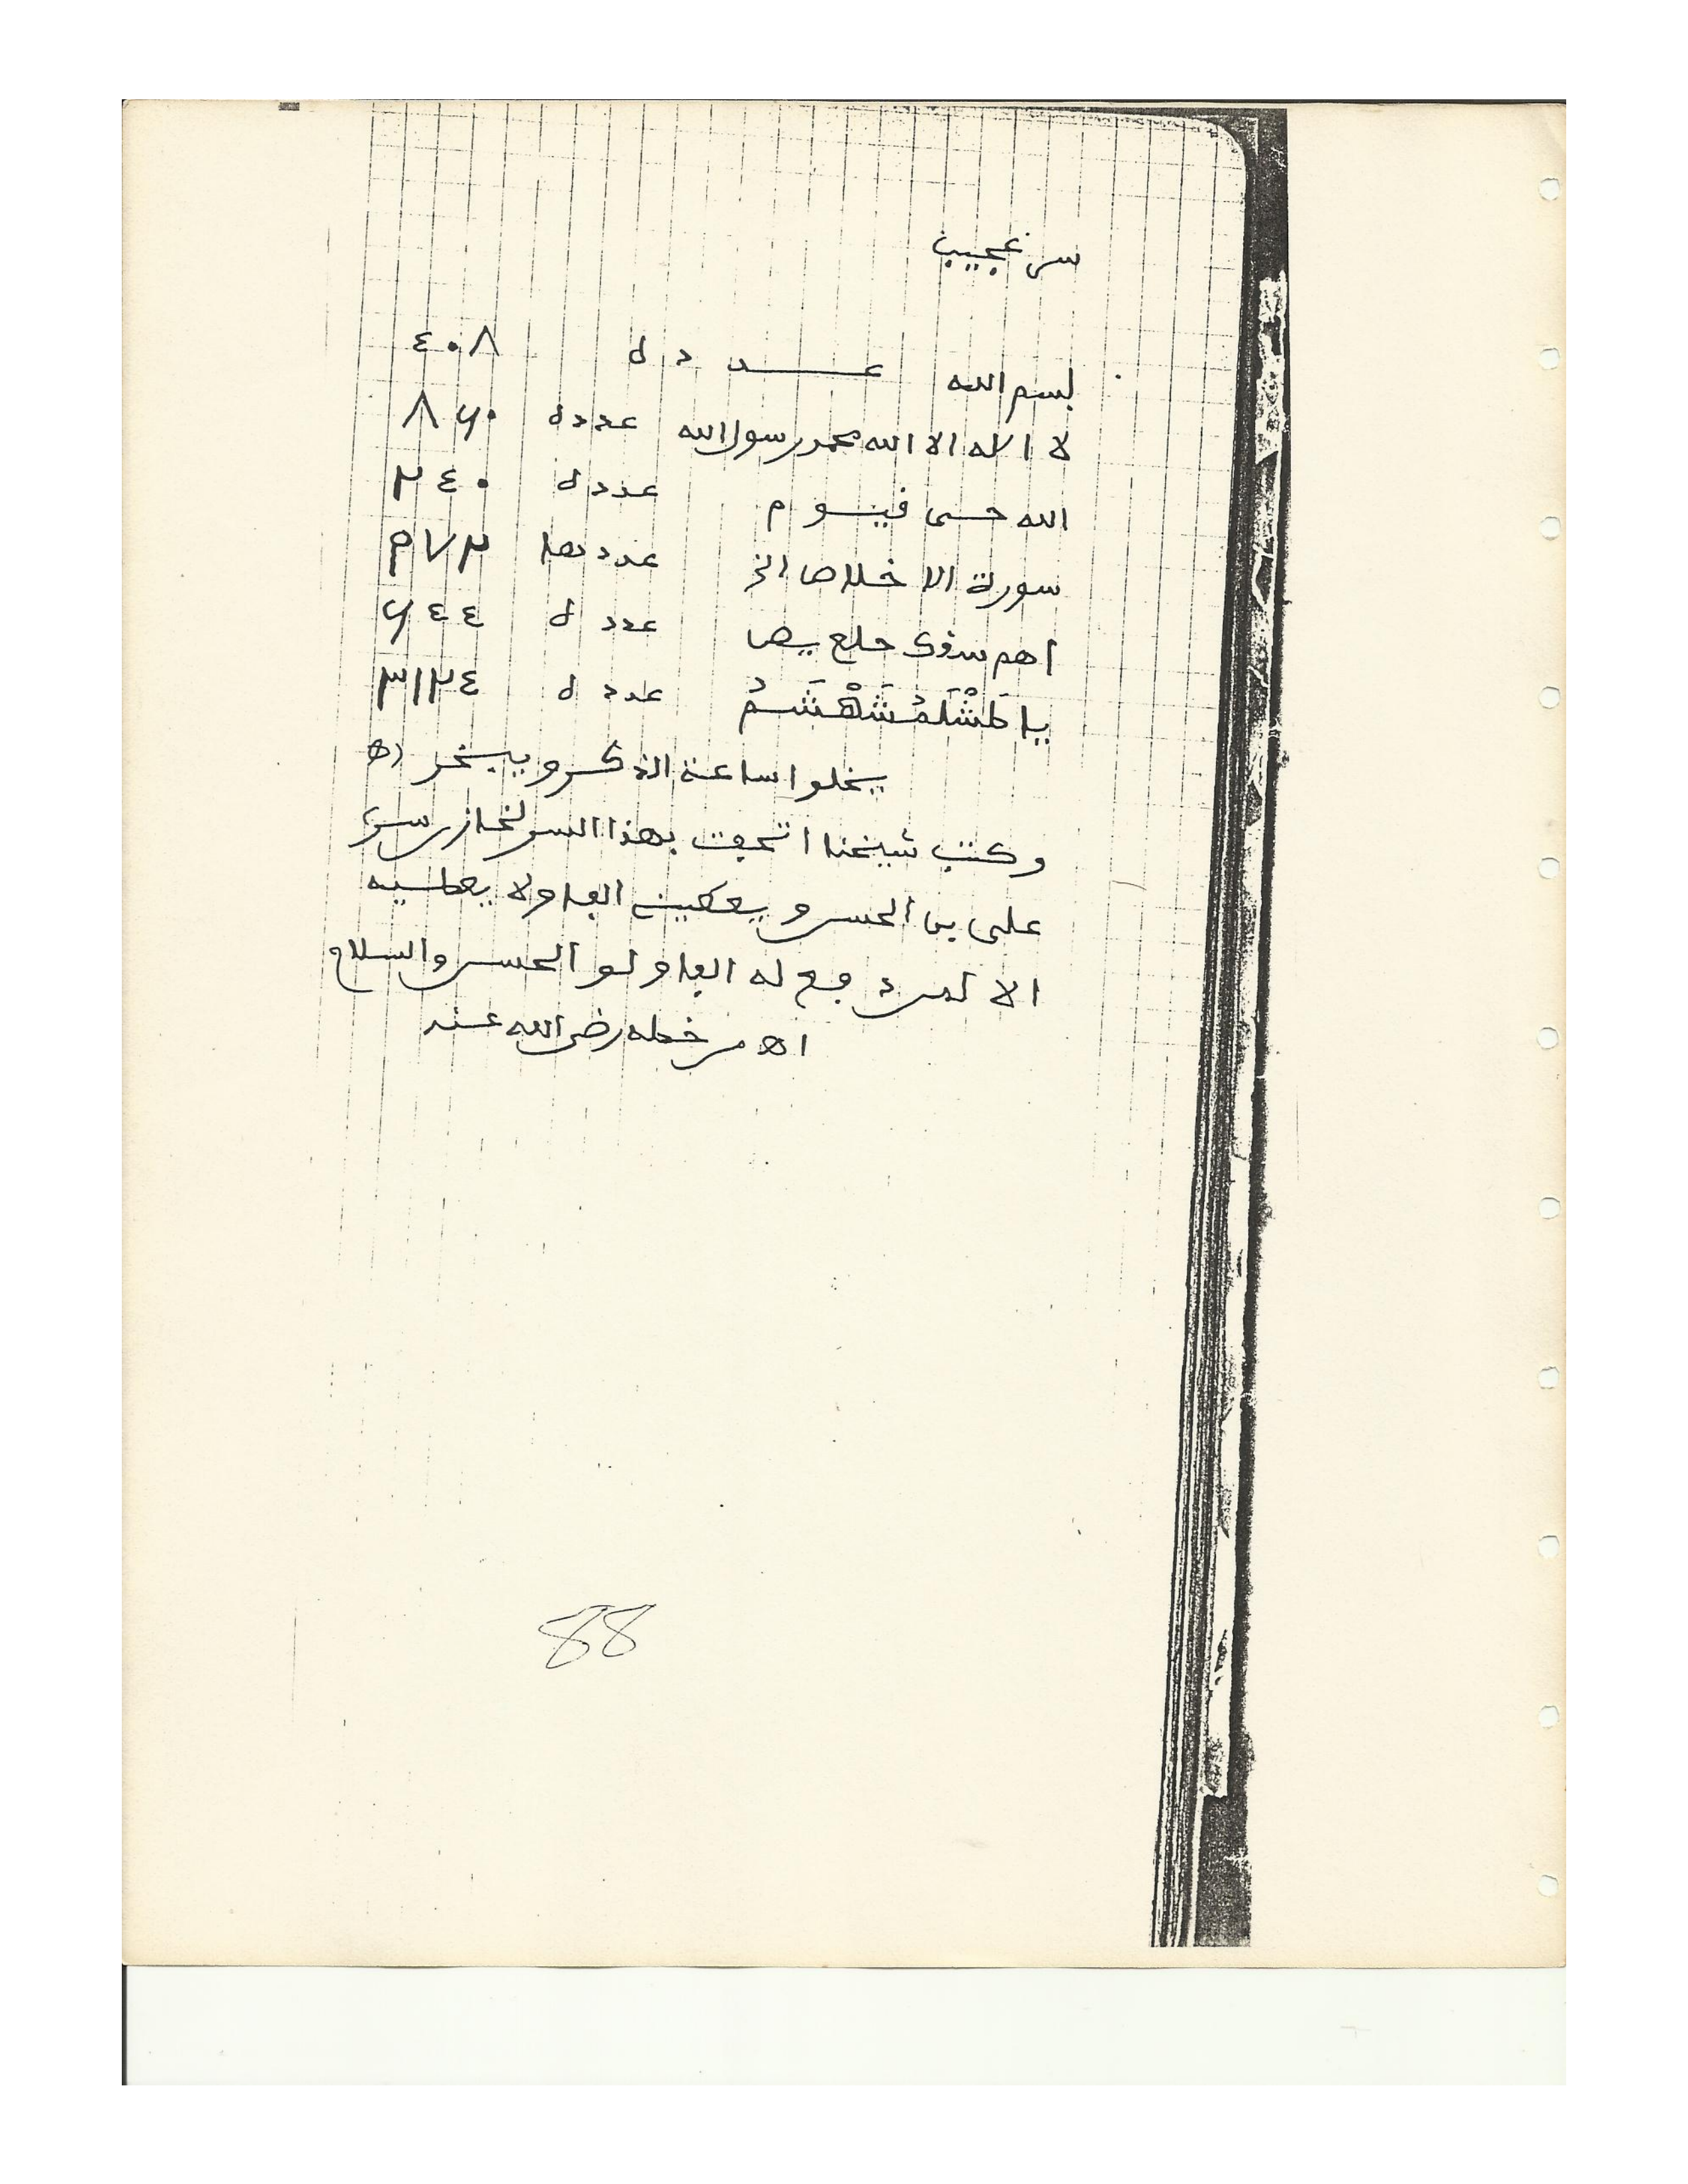 سر عجيب
بسم الله عـــدده ٤٠٨
لا اله الا الله محمد رسول الله عدده ٨٦٠
الله حي قيوم عدده ٢٤٠
سورة الاخلاص الخ عددها
اهم سقك حلع يص عدده ٦٤٤
يا طَشْلَمُشَهْشَمُ عدده ٣١٢٤
يخلوا ساعة الذكر ويبخر اه
وكتب شيخنا اتحفت بهذا السر
على بن الحسن و ولا يعطيه
الا لمن دفع له الحسن والسلام
اه من خطه رضي الله عنه
88